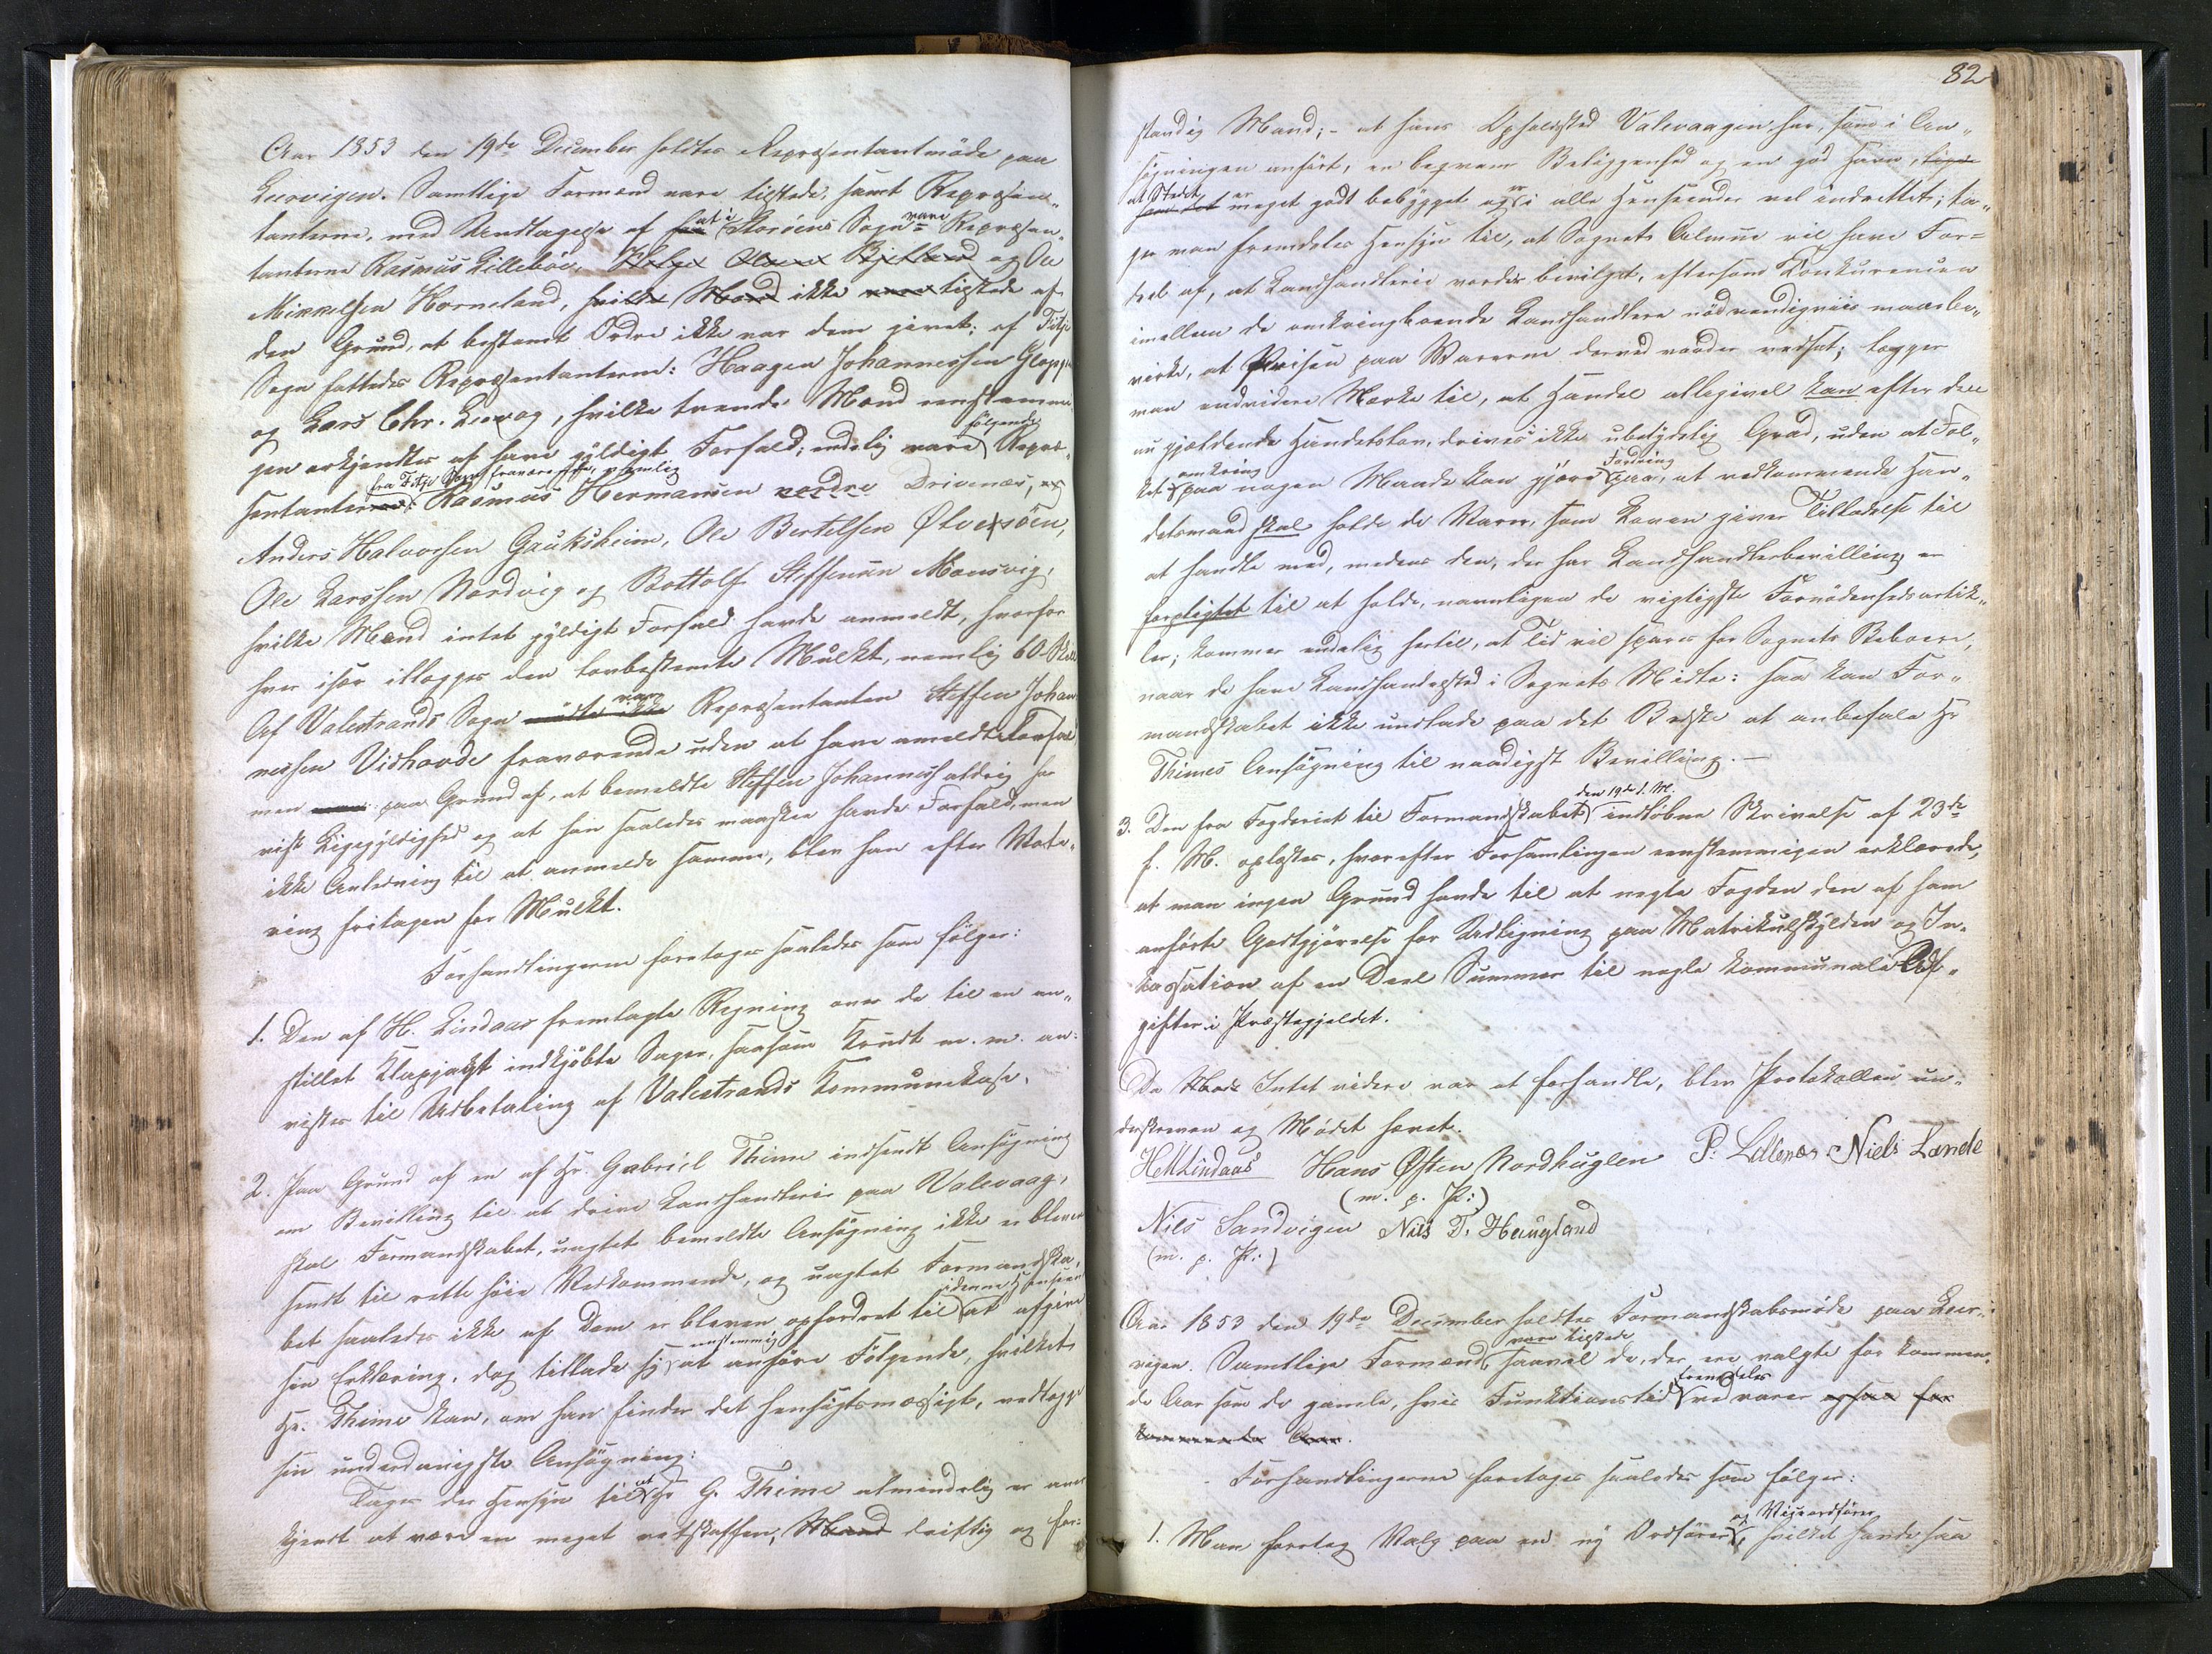 Aar 1853 den 19de December holdtes Repræsentantmöde paa
Leervigen. Samtlige Formænd vare tilstede, samt Repræsen„
tanterne, med Undtagelse af at i Storöens Sogn vare Repræsen„
tanterne Rasmus Lillebøe, Helge Olsen og Ole
Mikkelsen Horneland, hvilke Mænd ikke vare tilstede af
den Grund, at bestemt Ordre ikke var dem givet; af Fitje
Sogn fattedes Repræsentanterne: Haagen Johannessen Gloppen
og Lars Chr. Leervog, hvilke trende Mænd eenstemmi
gen erkjendtes at have gyldigt Forfald; endelig vare følgende Repræ-
sentanter fra Fitje Sogn fraværende, nemlig: Rasmus Hermansen nordre Drivenæs, og
Anders Halvorsen Gauksheim, Ole Bertelsen Ølversöen,
Ole Larssen Nordvig og Bottolf Steffensen Mousvig,
hvilke Mænd intet gyldigt Forfald havde anmeldt, hvorfor
hver især illægges den lovbestemte Mulkt, nemlig 60 Skill
Af Valestrands Sogn mödte ikke var Repræsentanten Steffen Johan
nessen Vidhovde fraværende uden at have anmeldt Forfald
men paa Grund af, at bemeldte Steffen Johanness aldrig har
vist Ligegyldighed og at han saaledes maaskee havde Forfald, men
ikke Anledning til at anmelde samme, blev han efter Vote„
ring fritagen for Mulkt.
Forhandlingerne foretoges saaledes som fölger:
1. Den af H. Lindaas fremlagte Regning over de til en an„
stillet Klapjagt indkjøbte Sager, saasom Krudt m. m. an-
vistes til Udbetaling af Valestrands Kommunekasse.
2. Paa Grund af en af Hr. Gabriel Thime indsendt Ansögning
om Bevilling til at drive Landhandlerie paa Valevaag,
skal Formandskabet, uagtet bemeldte Ansögning ikke er bleven
sendt til rette høie Vedkommende, og uagtet Formandska„
bet saaledes ikke af Dem er bleven opfordret til i denne Henseende at afgive
sin Erklæring, dog tillade sig eenstemmig at anföre Fölgende, hvilket
Hr. Thime kan, om han finder det hensigtsmæssigt, vedlægge
sin underdanigste Ansögning:
Tages der Hensyn til at Hr G. Thime almindelig er aner
kjendt at være en meget retskaffen, Mand driftig og for-
82
standig Mand; - at hans Opholdsted Valevaagen har, som i An„
sögningen anfört, en beqvem Beliggenhed og en god Havn, ligesom
at Stedet er meget godt bebygget og er i alle Henseender vel indrettet; ta„
ger man fremdeles Hensyn til, at Sognets Almue vil have For=
deel af, at Landhandlerie vorder bevilget, eftersom Konkurencen
imellem de omkringboende Landhandlere nödvendigviis maa be„
virke, at Prisen paa Varerne derved vorder nedsat; lægger
man endvidere Mærke til, at Handel alligevel kan efter den
nu gjældende Handelslov, drives i ikke ubetydelig Grad, uden at Fol„
ket omkring paa nogen Maade kan gjöre Fordring paa, at vedkommende Han„
delsmand skal holde de Varer, som Loven giver Tilladelse til
at handle med, medens den, der har Landhandlerbevilling er
forpligtet til at holde, navnligen de vigtigste Fornödenhedsartik„
ler; kommer endelig hertil, at Tid vil spares for Sognets Beboere,
naar de have Landhandelsted i Sognets Midte: saa kan For„
mandskabet ikke undlade paa det Bedste at anbefale Hr
Thimes Ansögning til naadigst Bevilling. —
3. Den fra Fogderiet til Formandskabet den 19de d. M. indlöbne Skrivelse af 23de
f. M. oplæstes, hvorefter Forsamlingen eenstemmigen erklærede,
at man ingen Grund havde til at negte Fogden den af ham
anförte Godtgjörelse for Udligning paa Matrikulskylden og In„
kassation af en Deel Summer til nogle kommunale Af„
gifter i Præstegjeldet.
Da Intet videre var at forhandle, blev Protokollen un„
derskreven og Mödet hævet.
H M Lindaas Hans Østen Nordhuglen P. Lillenæs Niels Lande
(m. p. P:)
Nils Sandvigen Nils T. Heügland
(m. p. P:)
Aar 1853 den 19de December holdtes Formandskabsmöde paa Leer„
vigen. Samtlige Formænd vare tilstede, saavel de, der ere valgte for kommen„
de Aar som de gamle, hvis Funktionstid fremdeles vedvarer ogsaa for
kommende Aar.
Forhandlingerne foretoges saaledes som fölger:
1. Man foretog Valg paa en ny Ordförer og Viceordförer, hvilket havde saa